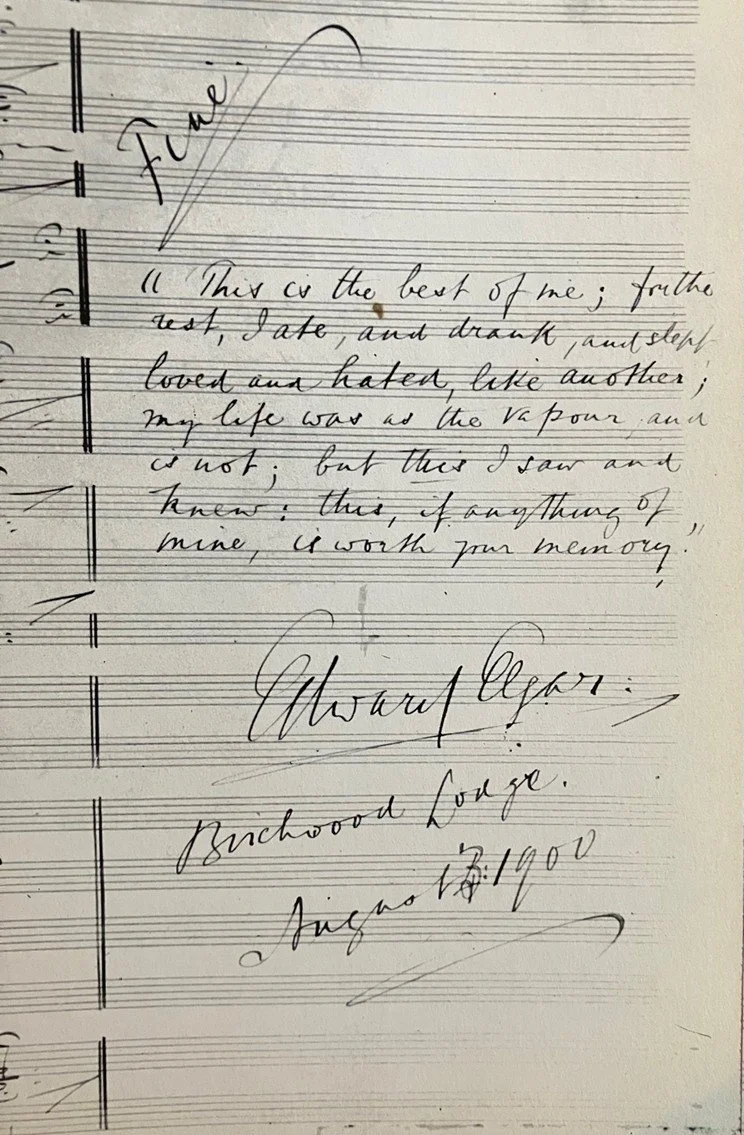 Fine.
" This is the best of me; for the
rest, I ate, and drank, and slept
loved and hated, like another;
my life was as the vapour, and
is not; but this I saw and
knew: this, if anything of
mine, is worth your memory."
Edward Elgar:
Birchwood Lodge.
August 1900